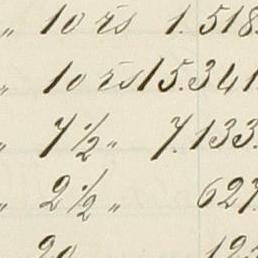 „ 10 rs 1.518.
„ 10 rs 15.341
„ 7 1/2 „ 7.133.
„ 2 1/2 „ 627.
20 123